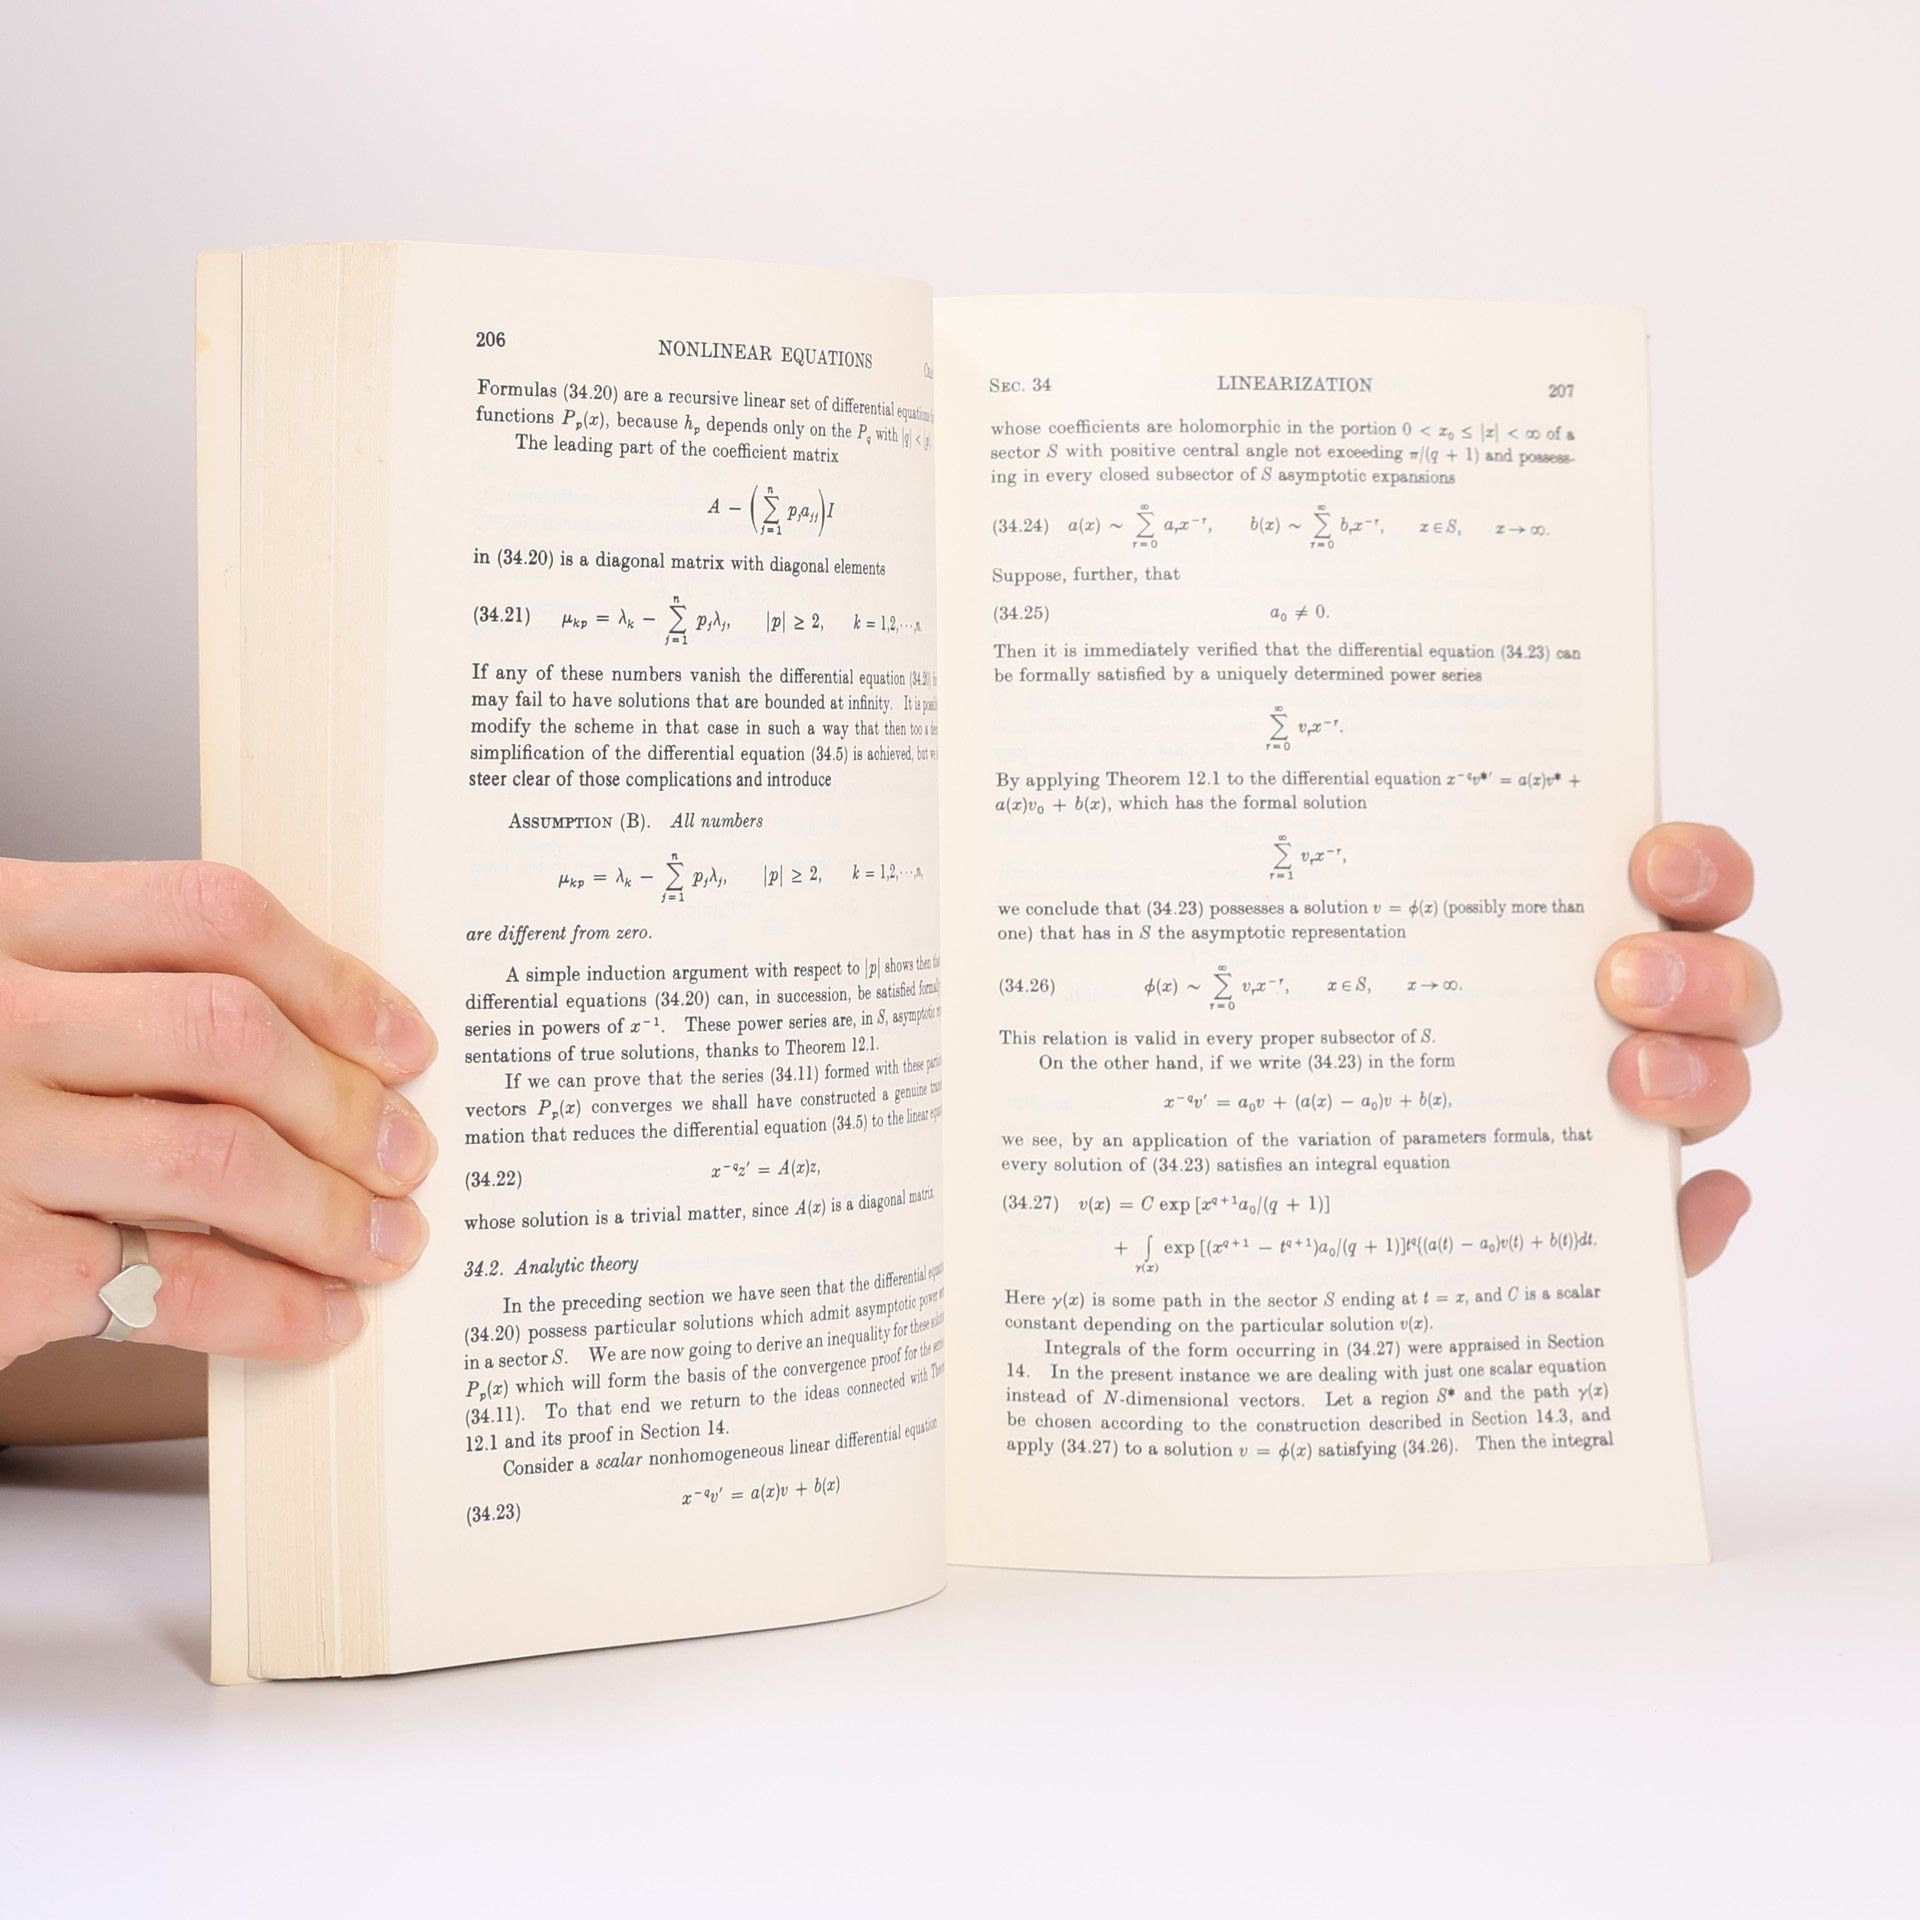 206 NONLINEAR EQUATIONS
Formulas (34.20) are a recursive linear set of differential equations
functions Pₚ(x), because hₚ depends only on the P_q with |q| <
The leading part of the coefficient matrix
A − (∑ⁿⱼ₌₁ pⱼaⱼⱼ)I
in (34.20) is a diagonal matrix with diagonal elements
(34.21) μₖₚ = λₖ − ∑ⁿⱼ₌₁ pⱼλⱼ, |p| ≥ 2, k = 1,2,⋯,n.
If any of these numbers vanish the differential equation (34.20)
may fail to have solutions that are bounded at infinity. It is
modify the scheme in that case in such a way that then too a
simplification of the differential equation (34.5) is achieved, but
steer clear of those complications and introduce
ASSUMPTION (B). All numbers
μₖₚ = λₖ − ∑ⁿⱼ₌₁ pⱼλⱼ, |p| ≥ 2, k = 1,2,⋯,n,
are different from zero.
A simple induction argument with respect to |p| shows then
differential equations (34.20) can, in succession, be satisfied
series in powers of x⁻¹. These power series are, in S, asymptotic
sentations of true solutions, thanks to Theorem 12.1.
If we can prove that the series (34.11) formed with these
vectors Pₚ(x) converges we shall have constructed a genuine
mation that reduces the differential equation (34.5) to the linear
(34.22) x^{-q}z′ = A(x)z,
whose solution is a trivial matter, since A(x) is a diagonal matrix
34.2. Analytic theory
In the preceding section we have seen that the differential
(34.20) possess particular solutions which admit asymptotic power
in a sector S. We are now going to derive an inequality for these
Pₚ(x) which will form the basis of the convergence proof for the
(34.11). To that end we return to the ideas connected with
12.1 and its proof in Section 14.
Consider a scalar nonhomogeneous linear differential equation
(34.23) x^{-q}v′ = a(x)v + b(x)
SEC. 34 LINEARIZATION 207
whose coefficients are holomorphic in the portion 0 < x₀ ≤ |x| < ∞ of a
sector S with positive central angle not exceeding π/(q + 1) and possess-
ing in every closed subsector of S asymptotic expansions
(34.24) a(x) ~ ∑^∞_{r=0} aᵣx^{-r}, b(x) ~ ∑^∞_{r=0} bᵣx^{-r}, x ∈ S, x → ∞.
Suppose, further, that
(34.25) a₀ ≠ 0.
Then it is immediately verified that the differential equation (34.23) can
be formally satisfied by a uniquely determined power series
∑^∞_{r=0} vᵣx^{-r}.
By applying Theorem 12.1 to the differential equation x^{-q}v*′ = a(x)v* +
a(x)v₀ + b(x), which has the formal solution
∑^∞_{r=1} vᵣx^{-r},
we conclude that (34.23) possesses a solution v = ϕ(x) (possibly more than
one) that has in S the asymptotic representation
(34.26) ϕ(x) ~ ∑^∞_{r=0} vᵣx^{-r}, x ∈ S, x → ∞.
This relation is valid in every proper subsector of S.
On the other hand, if we write (34.23) in the form
x^{-q}v′ = a₀v + (a(x) − a₀)v + b(x),
we see, by an application of the variation of parameters formula, that
every solution of (34.23) satisfies an integral equation
(34.27) v(x) = C exp [x^{q+1}a₀/(q + 1)]
+ ∫_{γ(x)} exp [(x^{q+1} − t^{q+1})a₀/(q + 1)]t^q{(a(t) − a₀)v(t) + b(t)}dt.
Here γ(x) is some path in the sector S ending at t = x, and C is a scalar
constant depending on the particular solution v(x).
Integrals of the form occurring in (34.27) were appraised in Section
14. In the present instance we are dealing with just one scalar equation
instead of N-dimensional vectors. Let a region S* and the path γ(x)
be chosen according to the construction described in Section 14.3, and
apply (34.27) to a solution v = ϕ(x) satisfying (34.26). Then the integral